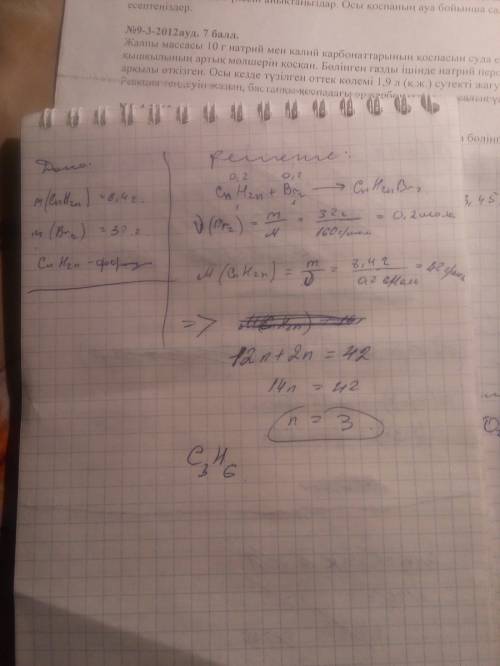 есептеңіздер.
№9-3-2012ауд. 7 балл.
Жалпы массасы 10 г натрий мен калий карбонаттарының қоспасын суда
қышқылының артық мөлшерін қосқан. Бөлінген газды ішінде натрий
арқылы өткізген. Осы кезде түзілген оттек көлемі 1,9 л (қ.ж.) сутекті жағу
Дано:
m(CnH2n) = 8,4 г.
m(Br2) = 32 г
CnH2n -
Решение:
0,2 0,2
CnH2n + Br2 → CnH2nBr2
1 1
ν(Br2) = m/M = 32 г/160 г/моль = 0,2 моль
M(CnH2n) = m/ν = 8,4 г/0,2 моль = 42 г/моль
=>
12n + 2n = 42
14n = 42
n = 3
C3H6